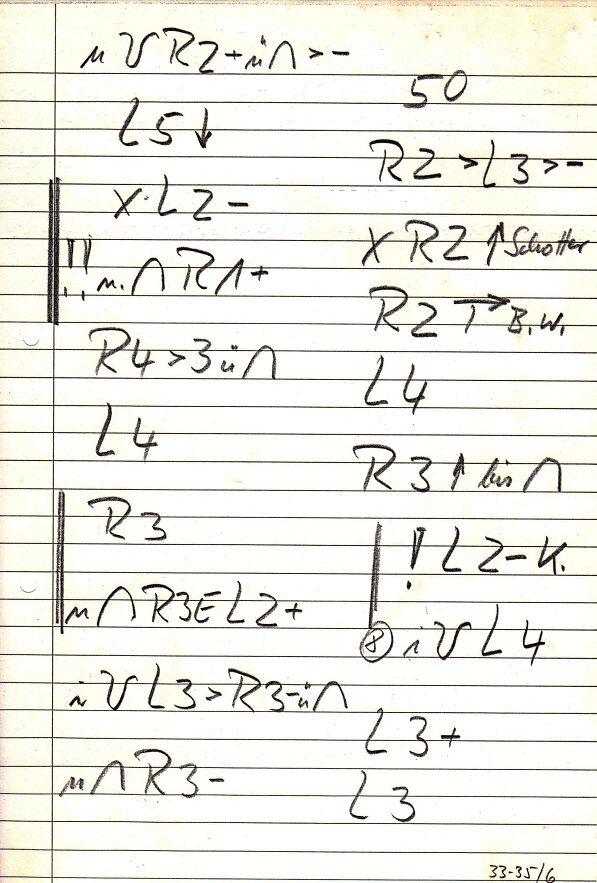 n V R2+ü∩>-
L5↓
X L2-
!! n. ∩ R1+
R4>3ü∩
L4
R3
n ∩ R3EL2+
i V L3>R3-ü∩
n ∩ R3-
50
R2>L3>-
X R2 ↑ Schotter
R2 → B.W.
L4
R3 ↑ bis ∩
! L2-K.
⑧ i V L4
L3+
L3
33-35/6